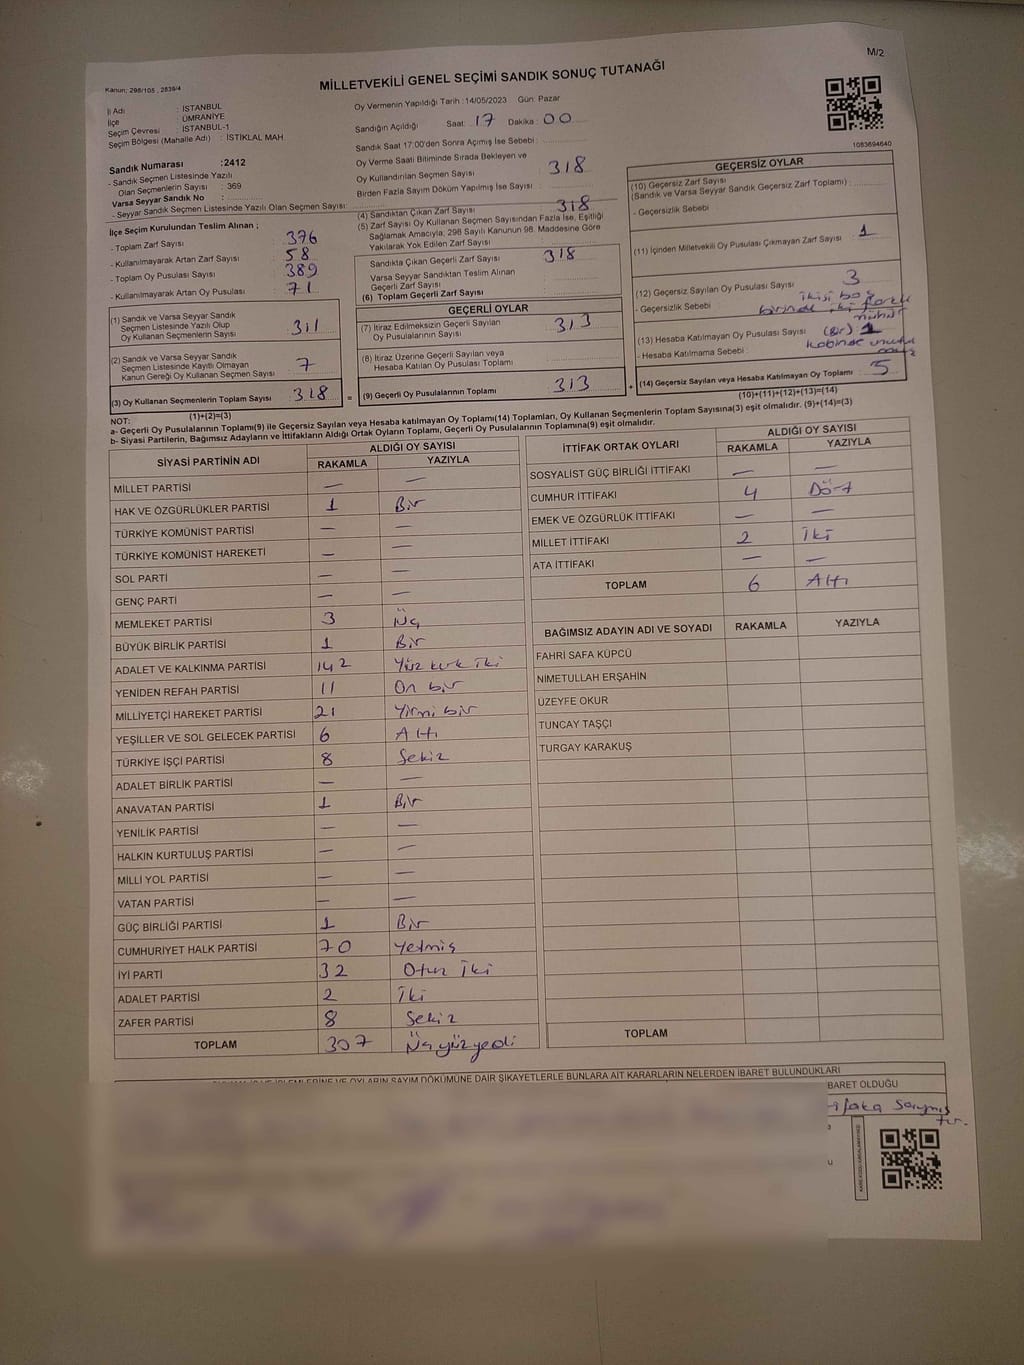 M/2
Kanun: 298/105 , 2839/4
MİLLETVEKİLİ GENEL SEÇİMİ SANDIK SONUÇ TUTANAĞI
İl Adı : İSTANBUL
İlçe : ÜMRANİYE
Seçim Çevresi : İSTANBUL-1
Seçim Bölgesi (Mahalle Adı) : İSTİKLAL MAH
Sandık Numarası :2412
- Sandık Seçmen Listesinde Yazılı
Olan Seçmenlerin Sayısı : 369
Varsa Seyyar Sandık No :
- Seyyar Sandık Seçmen Listesinde Yazılı Olan Seçmen Sayısı:
İlçe Seçim Kurulundan Teslim Alınan ;
- Toplam Zarf Sayısı : 376
- Kullanılmayarak Artan Zarf Sayısı : 58
- Toplam Oy Pusulası Sayısı : 389
- Kullanılmayarak Artan Oy Pusulası : 71
(1) Sandık ve Varsa Seyyar Sandık
Seçmen Listesinde Yazılı Olup
Oy Kullanan Seçmenlerin Sayısı : 311
(2) Sandık ve Varsa Seyyar Sandık
Seçmen Listesinde Kayıtlı Olmayan
Kanun Gereği Oy Kullanan Seçmen Sayısı : 7
(3) Oy Kullanan Seçmenlerin Toplam Sayısı : 318
(1)+(2)=(3)
Oy Vermenin Yapıldığı Tarih :14/05/2023 Gün: Pazar
Sandığın Açıldığı Saat: 17 Dakika : 00
Sandık Saat 17:00'den Sonra Açımış İse Sebebi :
Oy Verme Saati Bitiminde Sırada Bekleyen ve
Oy Kullandırılan Seçmen Sayısı : 318
Birden Fazla Sayım Döküm Yapılmış İse Sayısı :
(4) Sandıktan Çıkan Zarf Sayısı : 318
(5) Zarf Sayısı Oy Kullanan Seçmen Sayısından Fazla İse, Eşitliği
Sağlamak Amacıyla, 298 Sayılı Kanunun 98. Maddesine Göre
Yakılarak Yok Edilen Zarf Sayısı :
Sandıkta Çıkan Geçerli Zarf Sayısı : 318
Varsa Seyyar Sandıktan Teslim Alınan
Geçerli Zarf Sayısı :
(6) Toplam Geçerli Zarf Sayısı :
GEÇERLİ OYLAR
(7) İtiraz Edilmeksizin Geçerli Sayılan
Oy Pusulalarının Sayısı : 313
(8) İtiraz Üzerine Geçerli Sayılan veya
Hesaba Katılan Oy Pusulası Toplamı :
= (9) Geçerli Oy Pusulalarının Toplamı : 313 +
1083694640
GEÇERSİZ OYLAR
(10) Geçersiz Zarf Sayısı
(Sandık ve Varsa Seyyar Sandık Geçersiz Zarf Toplamı) :
- Geçersizlik Sebebi
(11) İçinden Milletvekili Oy Pusulası Çıkmayan Zarf Sayısı : 1
(12) Geçersiz Sayılan Oy Pusulası Sayısı : 3
- Geçersizlik Sebebi : ikisi boş
birinde iki farklı
mühür
(13) Hesaba Katılmayan Oy Pusulası Sayısı : (Bir) 1
- Hesaba Katılmama Sebebi : kabinde
(14) Geçersiz Sayılan veya Hesaba Katılmayan Oy Toplamı : 5
(10)+(11)+(12)+(13)=(14)
NOT:
a- Geçerli Oy Pusulalarının Toplamı(9) ile Geçersiz Sayılan veya Hesaba katılmayan Oy Toplamı(14) Toplamları, Oy Kullanan Seçmenlerin Toplam Sayısına(3) eşit olmalıdır. (9)+(14)=(3)
b- Siyasi Partilerin, Bağımsız Adayların ve İttifakların Aldığı Ortak Oyların Toplamı, Geçerli Oy Pusulalarının Toplamına(9) eşit olmalıdır.
SİYASİ PARTİNİN ADI ALDIĞI OY SAYISI
RAKAMLA YAZIYLA
MİLLET PARTİSİ — —
HAK VE ÖZGÜRLÜKLER PARTİSİ 1 Bir
TÜRKİYE KOMÜNİST PARTİSİ — —
TÜRKİYE KOMÜNİST HAREKETİ — —
SOL PARTİ — —
GENÇ PARTİ — —
MEMLEKET PARTİSİ 3 Üç
BÜYÜK BİRLİK PARTİSİ 1 Bir
ADALET VE KALKINMA PARTİSİ 142 Yüz kırk iki
YENİDEN REFAH PARTİSİ 11 On bir
MİLLİYETÇİ HAREKET PARTİSİ 21 Yirmi bir
YEŞİLLER VE SOL GELECEK PARTİSİ 6 Altı
TÜRKİYE İŞÇİ PARTİSİ 8 Sekiz
ADALET BİRLİK PARTİSİ — —
ANAVATAN PARTİSİ 1 Bir
YENİLİK PARTİSİ — —
HALKIN KURTULUŞ PARTİSİ — —
MİLLİ YOL PARTİSİ — —
VATAN PARTİSİ — —
GÜÇ BİRLİĞİ PARTİSİ 1 Bir
CUMHURİYET HALK PARTİSİ 70 Yetmiş
İYİ PARTİ 32 Otuz iki
ADALET PARTİSİ 2 İki
ZAFER PARTİSİ 8 Sekiz
TOPLAM 307 Üç yüz yedi
İTTİFAK ORTAK OYLARI ALDIĞI OY SAYISI
RAKAMLA YAZIYLA
SOSYALİST GÜÇ BİRLİĞİ İTTİFAKI — —
CUMHUR İTTİFAKI 4 Dört
EMEK VE ÖZGÜRLÜK İTTİFAKI — —
MİLLET İTTİFAKI 2 İki
ATA İTTİFAKI — —
TOPLAM 6 Altı
BAĞIMSIZ ADAYIN ADI VE SOYADI RAKAMLA YAZIYLA
FAHRİ SAFA KÜPCÜ
NİMETULLAH ERŞAHİN
ÜZEYFE OKUR
TUNCAY TAŞÇI
TURGAY KARAKUŞ
TOPLAM
OYLARIN SAYIM DÖKÜMÜNE DAİR ŞİKAYETLERLE BUNLARA AİT KARARLARIN NELERDEN İBARET BULUNDUKLARI
BARET OLDUĞU